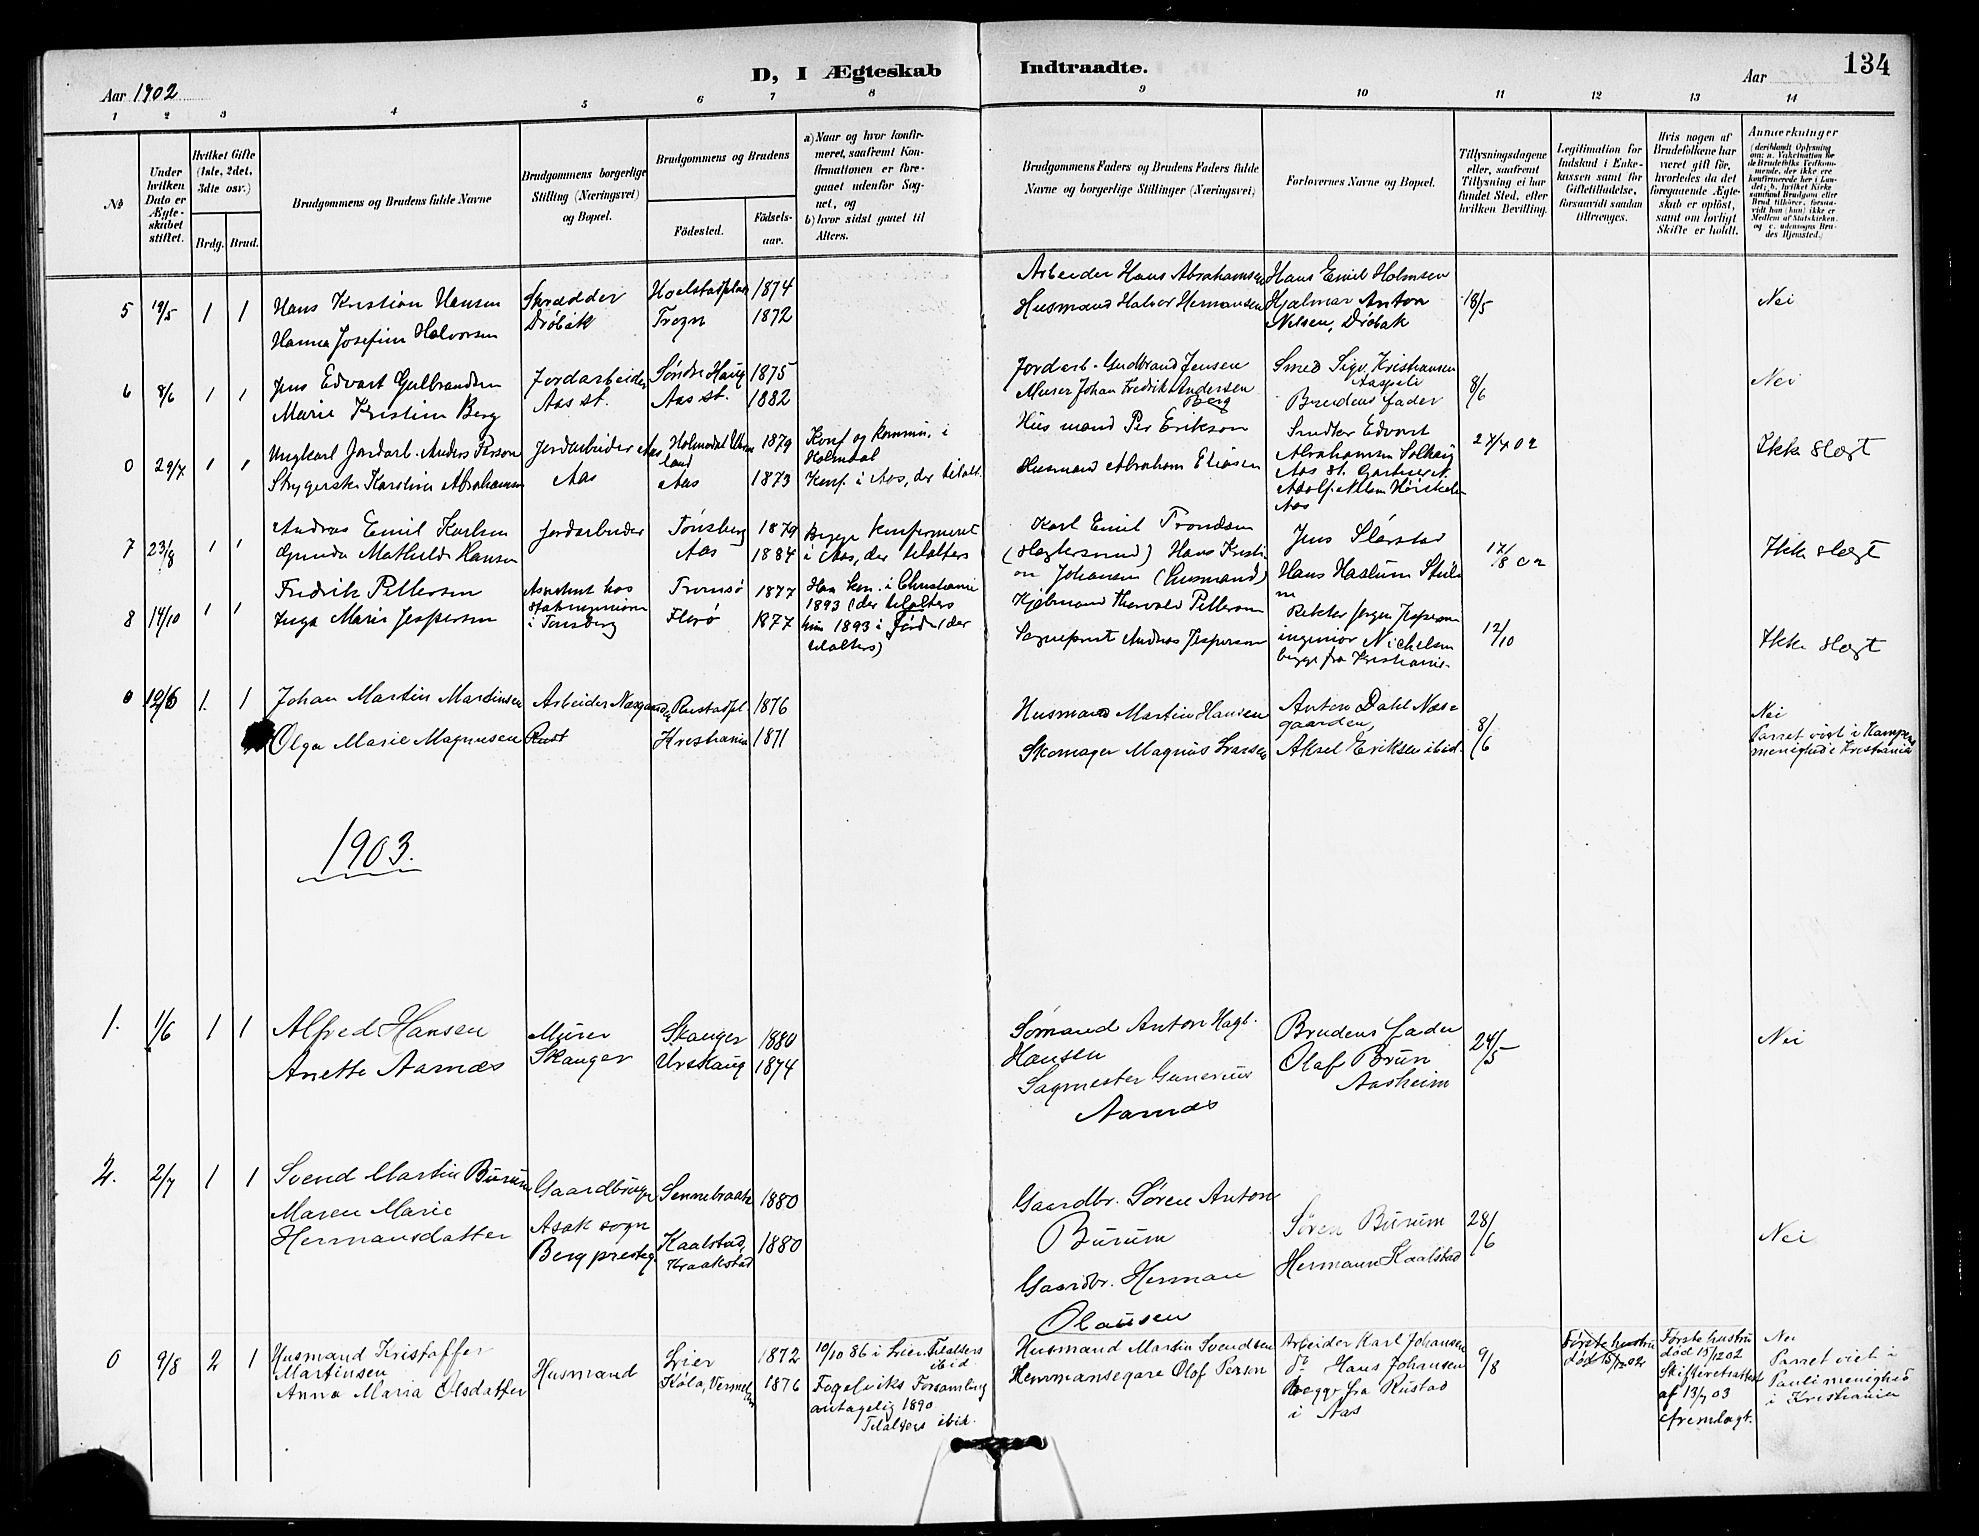 134
D, I Ægteskab Indtraadte.
Aar 1902
Aar
1 2 3 4 5 6 7 8 9 10 11 12 13 14
No
Under hvilken Dato er Ægteskabet stiftet.
Hvilket Gifte (1ste, 2det, 3dte osv.)
Brdg. Brud.
Brudgommens og Brudens fulde Navne
Brudgommens borgerlige Stilling (Næringsvei) og Bopæl.
Brudgommens og Brudens
Födested. Födselsaar.
a) Naar og hvor konfirmeret, saafremt Konfirmationen er foregaaet udenfor Sognet, og
b) hvor sidst gaaet til Alters.
Brudgommens Faders og Brudens Faders fulde Navne og borgerlige Stillinger (Næringsvei)
Forlovernes Navne og Bopæl.
Tillysningsdagene eller, saafremt Tillysning ei har fundet Sted, efter hvilken Bevilling.
Legitimation for Indskud i Enkekassen samt for Giftetilladelse, forsaavidt saadan tiltrænges.
Hvis nogen af Brudefolkene har været gift før, hvorledes da det foregaaende Ægteskab er oplöst, samt om lovligt Skifte er holdt.
Anmærkninger (deriblandt Oplysning om: a. Vakcination for de Brudefolks Vedkommende, der ikke ere konfirmerede her i Landet; b. hvilket Kirkesamfund Brudgom eller Brud tilhörer, forsaavidt han (hun) ikke er Medlem af Statskirken, og c. udensogns Brudes Hjemsted.)
5 19/5 1 1 Hans Kristian Hansen Skrædder 1874 Arbeider Hans Abrahamsen Hans Emil Holmsen 18/5 Nei
Hanna Josefine Halvorsen Drøbak Frogn 1872 Husmand Halvor Hermansen Hjalmar Anton
Nilsen, Drøbak
6 8/6 1 1 Jens Edvart Gulbrandsen Jordarbeider Søndre Haug 1875 Jordarb. Gudbrand Jensen Smed Sigv. Kristiansen 8/6 Nei
Marie Kristine Berg Aas st. Aas st. 1882 Murer Johan Fredrik Andersen Berg Brudens fader
0 29/7 1 1 Ungkarl Jordarb. Anders Person Jordarbeider Aas 1879 Konf og kommu. i Holmdal Husmand Per Erikson 27/7 02 Ikke Slegt
Strygerske Karoline Abrahamsen Aas 1873 Konf. i Aas, der tilalt. Husmand Abraham Eliasen
7 23/8 1 1 Andreas Emil Karlsen Jordarbeider Tönsberg 1879 Begge konfirmeret Karl Emil Trondsen Jens Slørstad 17/8 02 Ikke slegt
Gunda Mathilde Hansen Aas 1884 i Aas, der tilalters (Slagtersvend) Hans Kristian Johansen (husmand) Hans Haslum
8 14/10 1 1 Fredrik Pettersen Assistent hos Tromsö 1877 Han kon. i Christiania Thorvald Pettersen Rektor Jørgen Jespersen 12/10 Ikke slegt
Inga Marie Jespersen i Tønsberg Florø 1877 1893 (der tilalters hun 1893 i Førde (der tilalters) Sogneprest Andreas Jespersen ingeniør Nichelsen
begge fra Kristiania
0 12/6 1. 1 Johan Martin Martinsen Arbeider Næsgaarden Rustadpl 1876 Husmand Martin Hansen Anton Dahl Næsgaarden, 8/6 Nei
Olga Marie Magnusen Rust Kristiania 1871 Skomager Magnus Larsen Aksel Eriksen ibid. Parret viet i Kampens menighed i Kristiania
1903.
1. 1/6 1 1 Alfred Hansen Murer Skauger 1880 Sømand Anton Hagb. Hansen Brudens fader 24/5 Nei
Anette Aarnæs Skauger Urskaug 1874 Sagmester Gunerius Aarnæs Olaf Brun Aasheim
2. 2/7 1 1 Svend Martin Burum Gaardbruger Sennebraate 1880 Gaardbr. Søren Anton Burum Søren Burum 28/6 Nei
Maren Marie Hermansdatter Asak sogn Berg prestegj. Kaalstad, Kraakstad 1880 Gaardbr. Herman Olausen Hermann Kaalstad
0 9/8 2 1 Husmand Kristoffer Martinsen Husmand Lier 1872 10/10 86 i Lier. Tilalters ibid Husmand Martin Svendsen Arbeider Karl Johansen 9/8 Første hustru død 15/12 02 Første hustru død 15/12 02 Skifteretsattest af 13/7 03 fremlagt. Nei
Anna Maria Olsdatter Køla, Vermeland 1876 Fogelviks Forsamling antagelig 1890 Tilalters ibid. Hemmansegare Olof Person do Hans Johnsen begge fra Rustad i Aas Parret viet i Pauli menighed i Kristiania